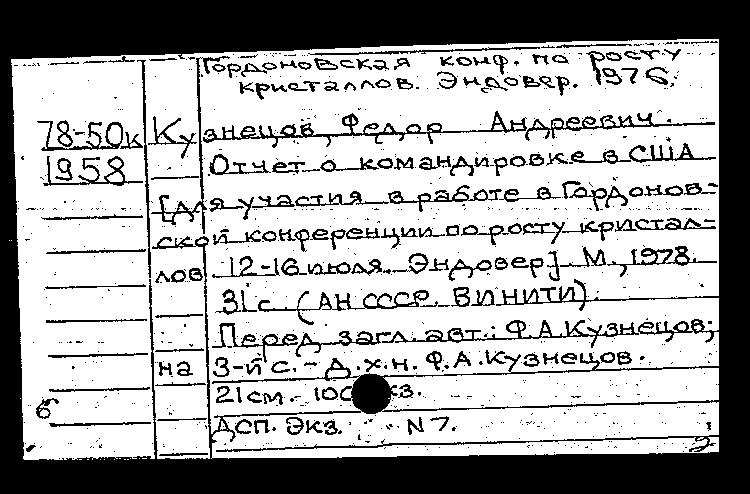 Гордоновская конф. по росту
кристаллов. Эндовер. 1976.
78-50к Кузнецов, Федор Андреевич.
1958 Отчет о командировке в США
[для участия в работе в Гордонов-
ской конференции по росту кристал-
лов 12-16 июля. Эндовер]. М., 1978.
31 с. (АН СССР. ВИНИТИ).
Перед загл. авт.: Ф.А.Кузнецов;
на 3-й с. - д.х.н. Ф.А.Кузнецов.
21 см. -
б
ДСП. Экз. N 7.
2